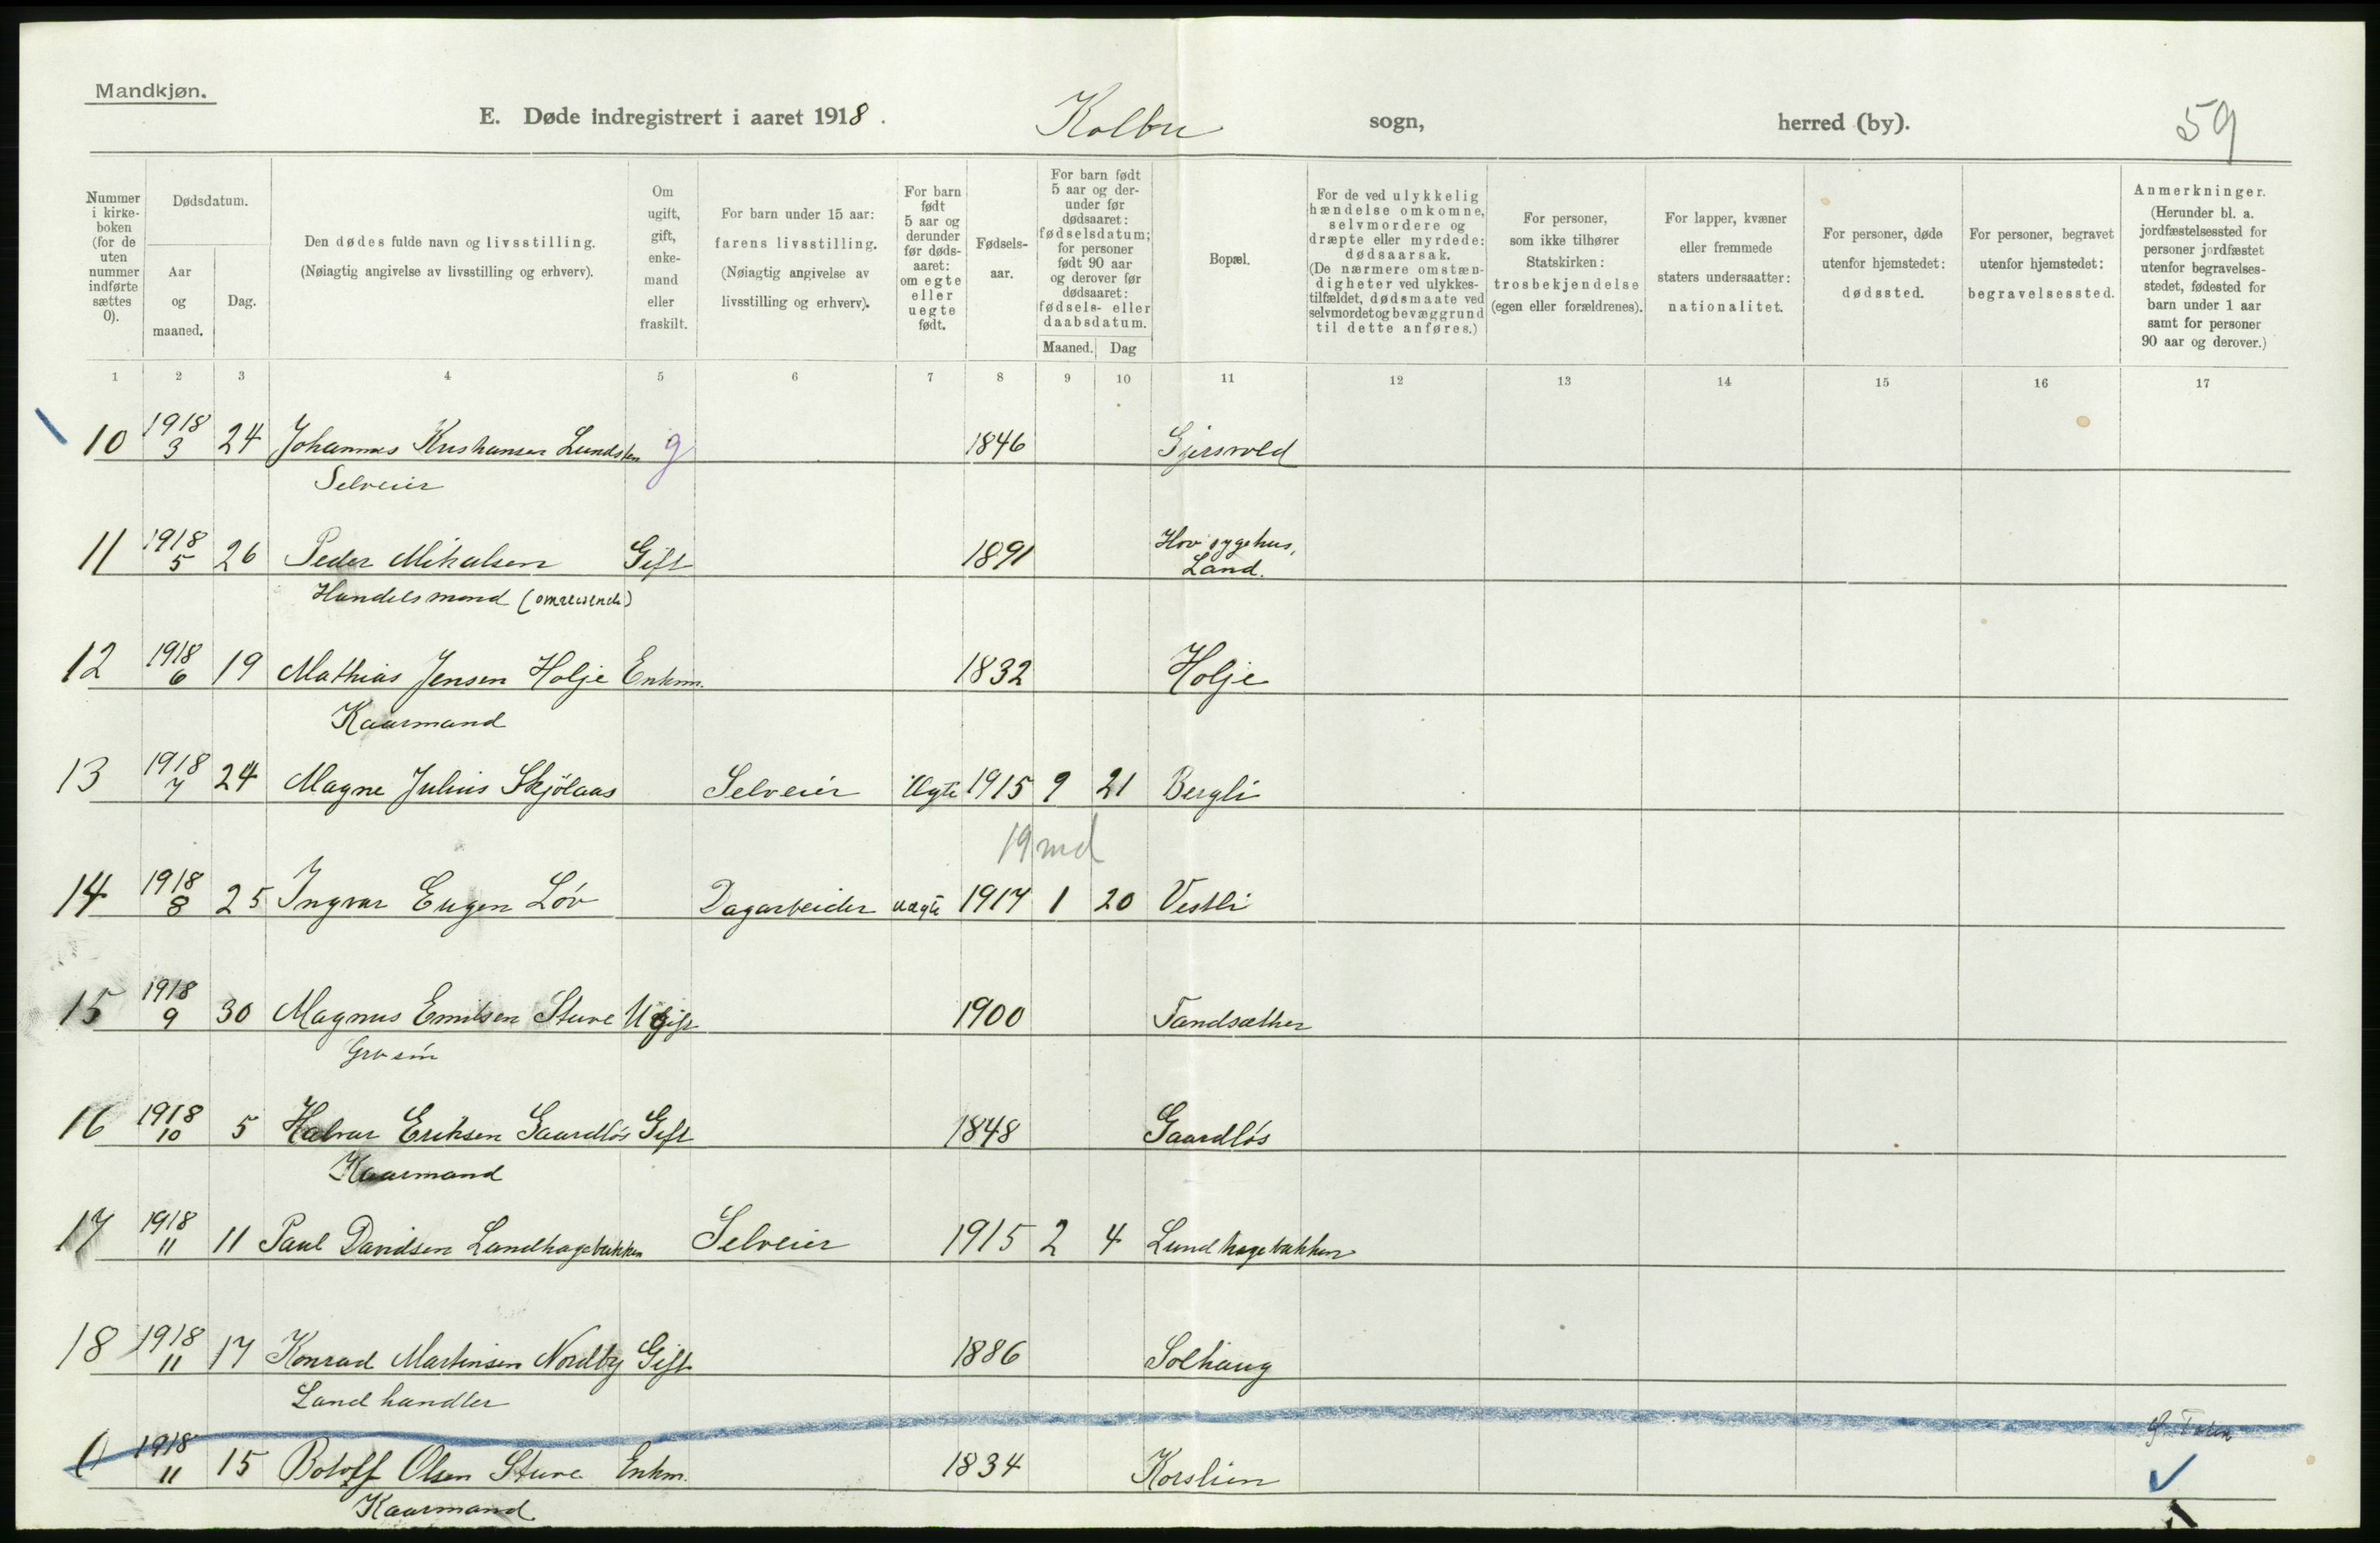 Mandkjøn.
E. Døde indregistrert i aaret 1918. Kolbu sogn, herred (by). 59
Nummer i kirkeboken (for de uten nummer indførte sættes 0).
Dødsdatum.
Aar og maaned.
Dag.
Den dødes fulde navn og livsstilling.
(Nøiagtig angivelse av livsstilling og erhverv).
Om ugift, gift, enkemand eller fraskilt.
For barn under 15 aar: farens livsstilling. (Nøiagtig angivelse av livsstilling og erhverv).
For barn født 5 aar og derunder før dødsaaret: om egte eller uegte født.
Fødselsaar.
For barn født 5 aar og derunder før dødsaaret: fødselsdatum; for personer født 90 aar og derover før dødsaaret: fødsels- eller daabsdatum.
Maaned. Dag
Bopæl.
For de ved ulykkelig hændelse omkomne, selvmordere og dræpte eller myrdede: dødsaarsak. (De nærmere omstændigheter ved ulykkestilfældet, dødsmaate ved selvmordet og bevæggrund til dette anføres.)
For personer, som ikke tilhører Statskirken: trosbekjendelse (egen eller forældrenes).
For lapper, kvæner eller fremmede staters undersaatter: nationalitet.
For personer, døde utenfor hjemstedet: dødssted.
For personer, begravet utenfor hjemstedet: begravelsessted.
Anmerkninger. (Herunder bl. a. jordfæstelsessted for personer jordfæstet utenfor begravelsesstedet, fødested for barn under 1 aar samt for personer 90 aar og derover.)
1 2 3 4 5 6 7 8 9 10 11 12 13 14 15 16 17
10 1918 3 24 Johannes Kristiansen Lundsten g 1846 Gjersvold
Selveier
11 1918 5 26 Peder Mikalsen Gift 1891 Hov sygehus, Land.
Handelsmand (omreisende)
12 1918 6 19 Mathias Jensen Holje Enkm. 1832 Holje
Kaarmand
13 1918 7 24 Magne Julius Skjölaas Selveier Ægte 1915 9 21 Bergli
19 md
14 1918 8 25 Ingvar Eugen Löv Dagarbeider uægte 1917 1 20 Vestli
15 1918 9 30 Magnus Emilsen Sture Ugift 1900 Tandsæther
Grdsön
16 1918 10 5 Halvar Eriksen Gaardlös Gift 1848 Gaardlös
Kaarmand
17 1918 11 11 Paul Davidsen Lundhagebakken Selveier 1915 2 4 Lundhagebakken
18 1918 11 17 Konrad Martinsen Nordby Gift 1886 Solhaug
Landhandler
0 1918 11 15 Botoff Olsen Sture Enkm. 1834 Korslien
Kaarmand